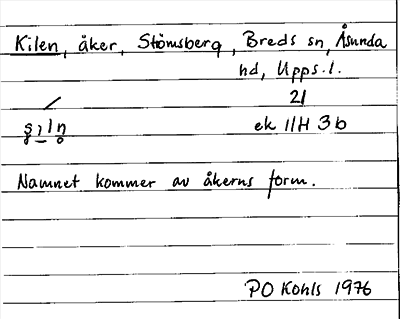 Kilen, åker, Strömsberg, Breds sn, Åsunda
hd, Upps.l.
21
ek 11H 3b
Namnet kommer av åkerns form.
PO Kohls 1976